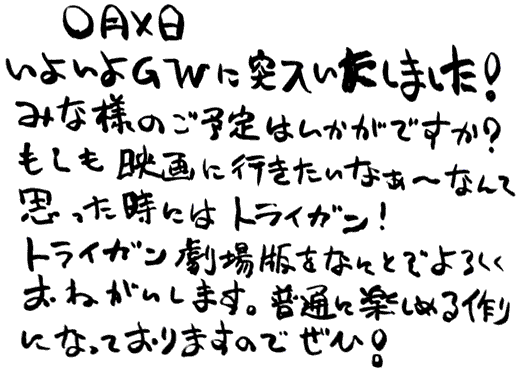 〇月×日
いよいよGWに突入いたしました!
みな様のご予定はいかがですか?
もしも映画に行きたいなぁ〜なんて
思った時にはトライガン!
トライガン劇場版をなにとぞよろしく
おねがいします。普通に楽しめる作り
になっておりますのでぜひ!